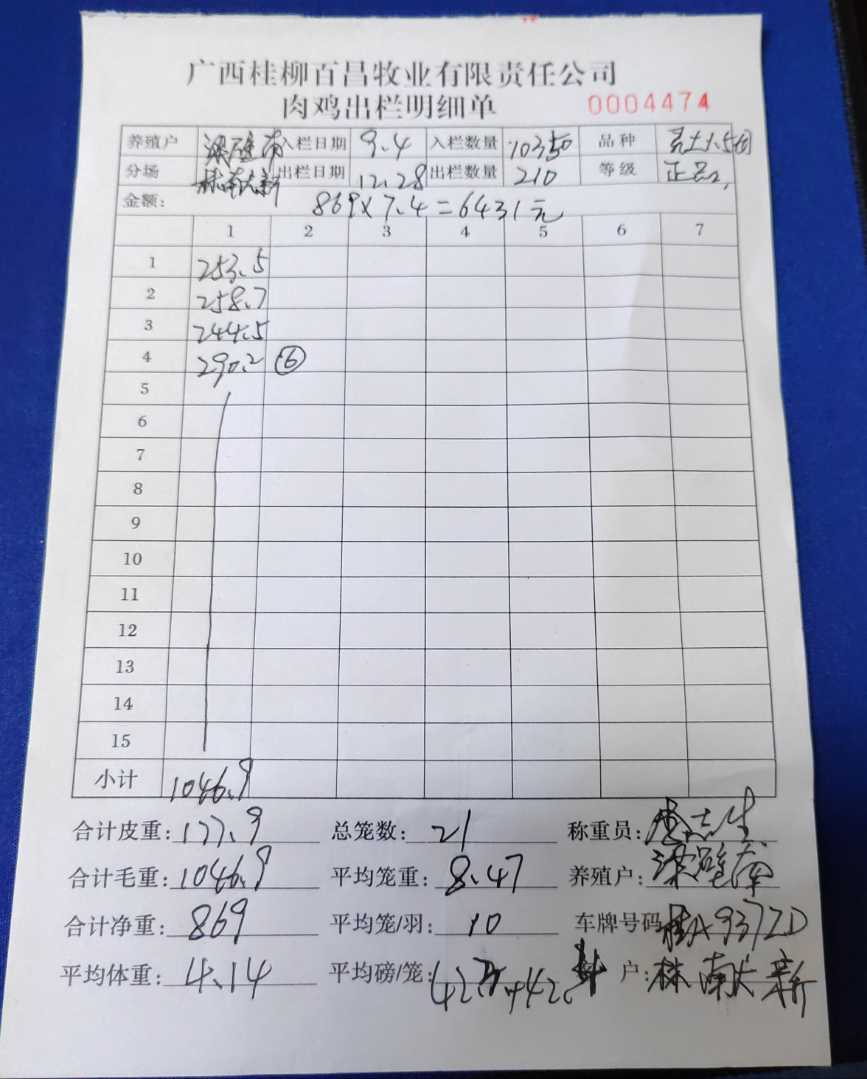 广西桂柳百昌牧业有限责任公司
肉鸡出栏明细单 0004474
养殖户 入栏日期 9.4 入栏数量 10350 品种
分场 林南大新 出栏日期 12.28 出栏数量 210 等级 正品
金额: 869×7.4=6431元
1 2 3 4 5 6 7
1 253.5
2 258.7
3 244.5
4 290.2 ⑥
5
6
7
8
9
10
11
12
13
14
15
小计 1046.9
合计皮重: 177.9 总笼数: 21 称重员:
合计毛重: 1046.9 平均笼重: 8.47 养殖户:
合计净重: 869 平均笼/羽: 10 车牌号码 桂A9372D
平均体重: 4.14 平均磅/笼: 户: 林南大新